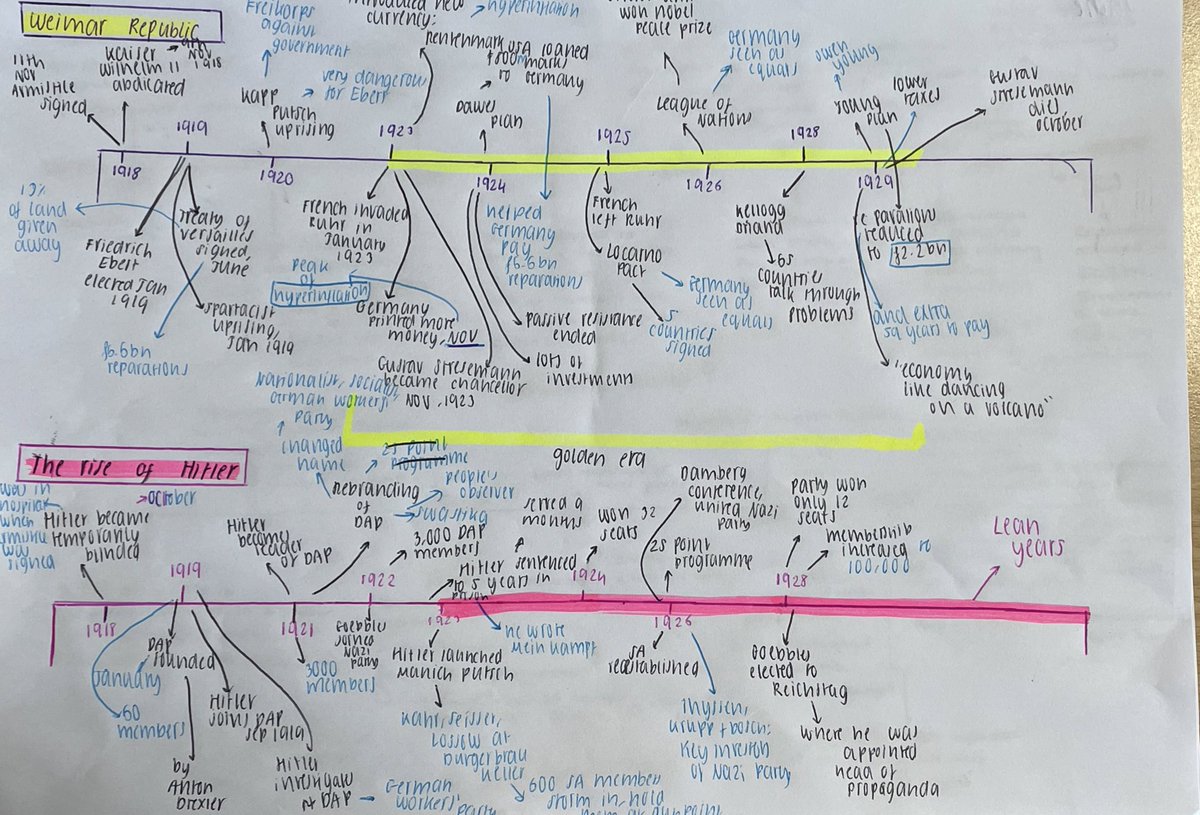 Weimar Republic
11th
Nov
Armistice
signed
Kaiser
Wilhelm II
abdicated
9th
Nov
1918
Freikorps
against
government
Kapp
Putsch
uprising
very dangerous
for Ebert
introduced new
currency:
rentenmark
hyperinflation
USA loaned
marks
to Germany
Dawes
plan
won nobel
peace prize
Germany
seen as
equals
League of
Nations
owen
young
Young
plan
lower
taxes
Gustav
Stresemann
dies,
October
1918
1919
1920
1923
1924
1925
1926
1928
1929
13%
of land
given
away
Friedrich
Ebert
elected Jan
1919
Treaty of
Versailles
signed,
June
£6.6bn
reparations
Spartacist
uprising,
Jan 1919
French invaded
Ruhr in
January
1923
peak
of
hyperinflation
Germany
printed more
money, NOV
Gustav Stresemann
became chancellor
NOV, 1923
helped
Germany
pay
£6.6bn
reparations
passive resistance
ended
lots of
investment
French
left Ruhr
Locarno
Pact
Germany
seen as
equals
5
countries
signed
Kellogg
Briand
65
countries
talk through
problems
reduced
to £2.2bn
and extra
59 years to pay
"economy
like dancing
on a volcano"
golden era
The rise of Hitler
was in
hospital
when
signed
October
Hitler became
temporarily
blinded
Hitler
became
leader
of DAP
Nationalist, socialist
German workers'
party
changed
name
25 point
programme
rebranding
of
DAP
people's
observer
swastika
3,000 DAP
members
served 9
months
Hitler sentenced
to 5 years in
prison
won 32
seats
Bamberg
conference,
united Nazi
Party
25 point
programme
party won
only 12
seats
membership
increased to
100,000
Lean
years
1918
1919
1921
1922
1923
1924
1926
1928
DAP
founded
January
60
members
by
Anton
Drexler
Hitler
joins DAP
Sep 1919
Hitler
DAP
German
workers'
party
3000
members
Goebbels
joined
Nazi
party
Hitler launched
Munich Putsch
Kahr, Seisser,
Lossow at
Burgerbrau
Keller
600 SA member
storm in, hold
them at gunpoint
he wrote
Mein Kampf
SA
reestablished
Thyssen,
Krupp + Bosch:
key investors
of Nazi Party
Goebbels
elected to
Reichstag
where he was
appointed
head of
propaganda